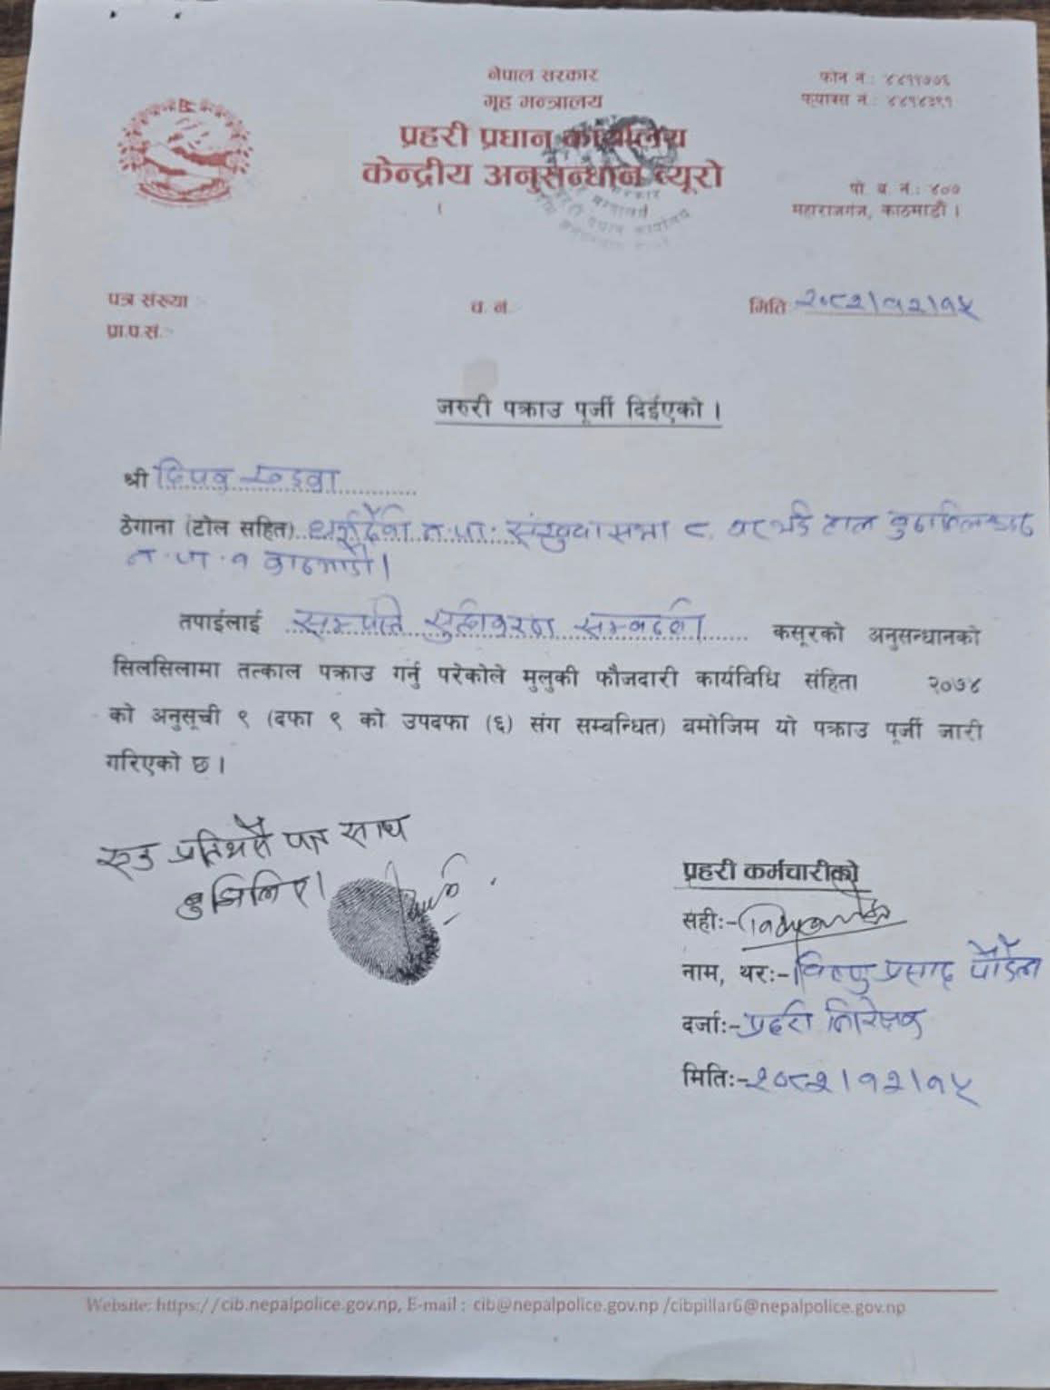 नेपाल सरकार
गृह मन्त्रालय
प्रहरी प्रधान कार्यालय
केन्द्रीय अनुसन्धान ब्यूरो
फोन नं.: ४४११७७६
फ्याक्स नं.:
पो. ब. नं.: ४०७
महाराजगंज, काठमाडौं ।
पत्र संख्या :-
प्रा.प.सं.:-
च. नं.
मिति २०८२।१२।१५
जरुरी पक्राउ पूर्जी दिईएको ।
श्री दिपक
ठेगाना (टोल सहित) धर्मदेवी न.पा. संखुवासभा ८ घर भई हाल बुढानिलकण्ठ
न.पा. १ काठमाडौं।
तपाईलाई सम्पत्ति शुद्धिकरण सम्बन्धी कसूरको अनुसन्धानको
सिलसिलामा तत्काल पक्राउ गर्नु परेकोले मुलुकी फौजदारी कार्यविधि संहिता २०७४
को अनुसूची ९ (दफा ९ को उपदफा (६) संग सम्बन्धित) बमोजिम यो पक्राउ पूर्जी जारी
गरिएको छ ।
एउ प्रति मैले पत्र साथ
बुझिलिए।
प्रहरी कर्मचारीको
सही:-
नाम, थर:- विष्णु प्रसाद पौडेल
दर्जा:- प्रहरी निरिक्षक
मिति:- २०८२।१२।१५
Website: https://cib.nepalpolice.gov.np, E-mail : cib@nepalpolice.gov.np /cibpillar6@nepalpolice.gov.np